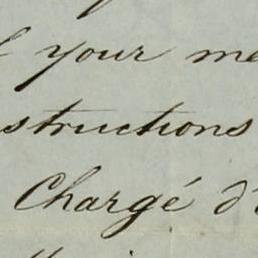 your me
structions
Chargé d'